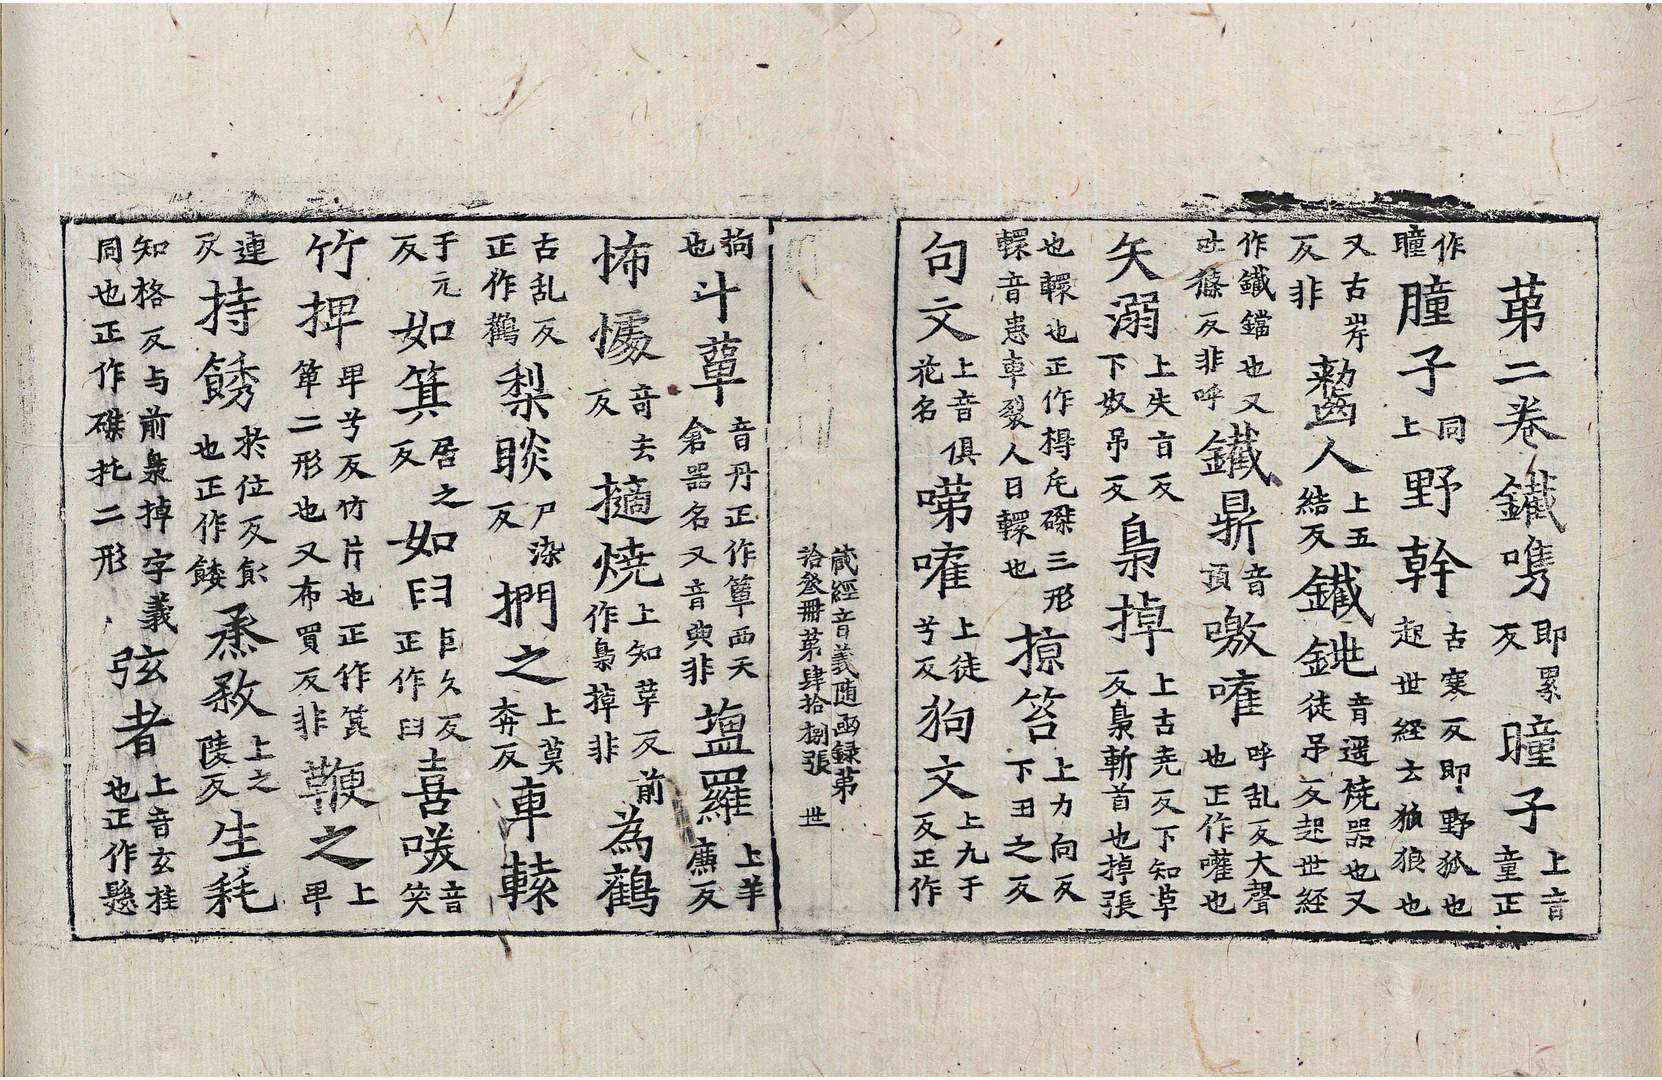 苐二卷 鐵㗱即累反 曈子上音童正
作瞳 膧子同上 野幹古寒反即野狐也起世經云狼狼也
又古岸反非 齧人上五結反 鐵銚音遥燒器也又徒吊反起世經
作鐵鐺也又吐篠反非呼 鐵鼎音頂 噭嚾呼乱反大聲也正作嚾也
矢溺上失旨反下奴吊反 梟掉上古尭反下知草反梟斬首也掉張
也轘也正作榯乇磔三形轘音患車裂人曰轘也 掠笞上力向反下丑之反
句文上音俱花名 㘑嚾上徒兮反 狗文上九于反正作
狗也 斗蕈音丹正作簞西天倉器名又音輿非 塩羅上羊廉反
怖懅音去反 擿燒上知草反前作梟掉非 為鸛
古乱反正作鸛 梨睒尸染反 捫之上莫奔反 車轅
于元反 如箕居之反 如臼臣久反正作臼 喜咲音笑
竹捭卑兮反竹片也正作箄箪二形也又布買反非 鞭之上卑
連反 持餝於位反飤也正作餧 烝敹上之陵反 生毦
知格反与前梟掉字義同也正作磔扥二形 弦者上音玄挂也正作懸
蔵經音義随函録苐拾叄冊苐肆拾捌張 世